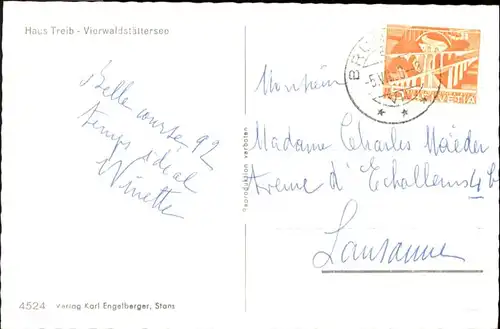 Haus Treib - Vierwaldstättersee
Belle course
temps idéal
Ninette
Reproduktion verboten
HELVETIA
Monsieur
Madame Charles Maeder
Avenue d'Echallens
Lausanne
4524 Verlag Karl Engelberger, Stans